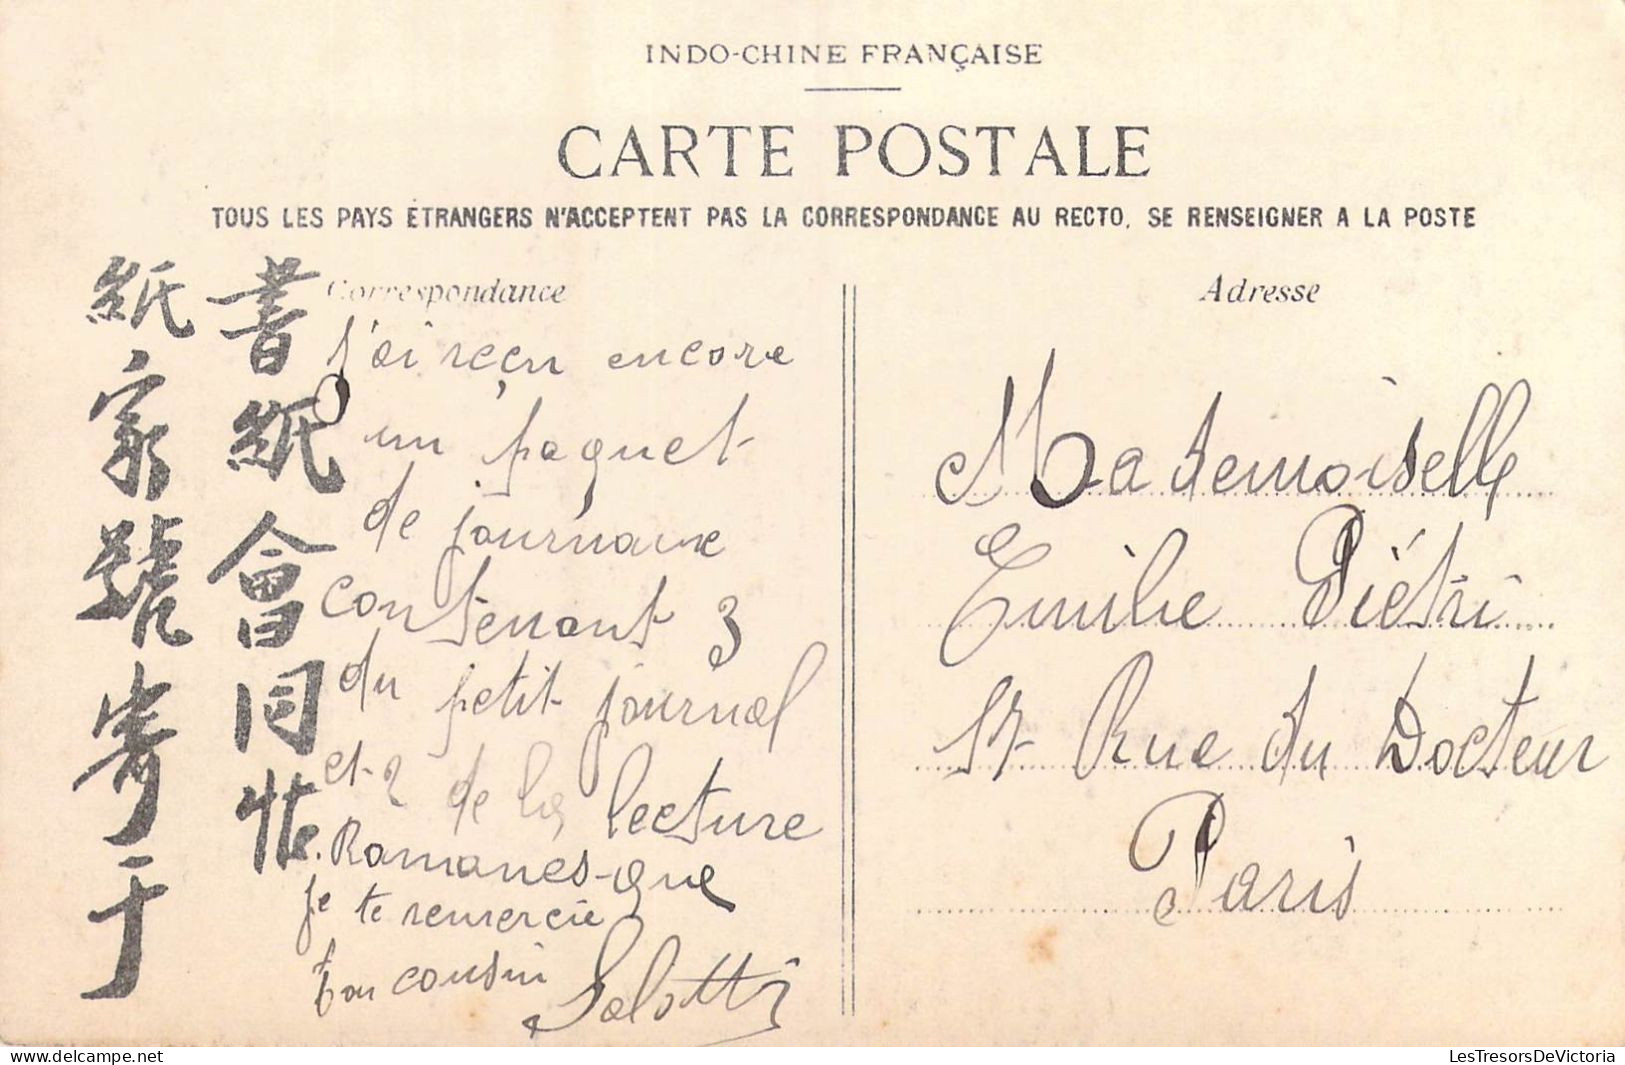 INDO-CHINE FRANÇAISE
CARTE POSTALE
TOUS LES PAYS ÉTRANGERS N'ACCEPTENT PAS LA CORRESPONDANCE AU RECTO, SE RENSEIGNER A LA POSTE
書紙會同
紙家號寄于
Correspondance
J'ai reçu encore
un paquet
de journaux
contenant 3
du petit journal
et 2 de la lecture
Romanes que
je te remercie
ton cousin
Adresse
Mademoiselle
Emilie Piétri
Rue du Docteur
Paris
LesTresorsDeVictoria